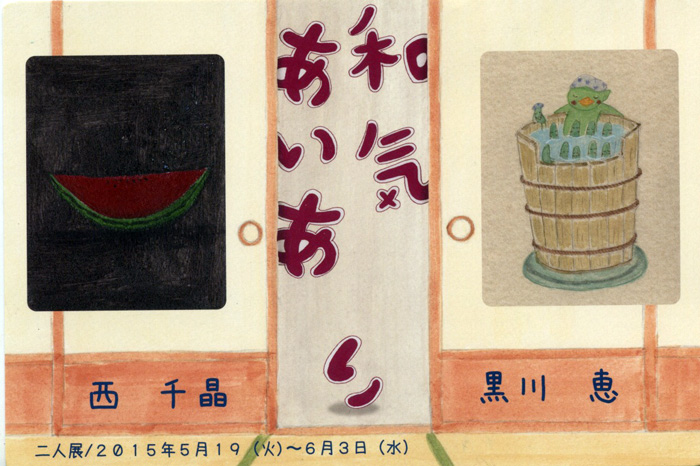 和気
あいあ
い
西 千晶
黒川 恵
二人展/2015年5月19(火)～6月3日(水)